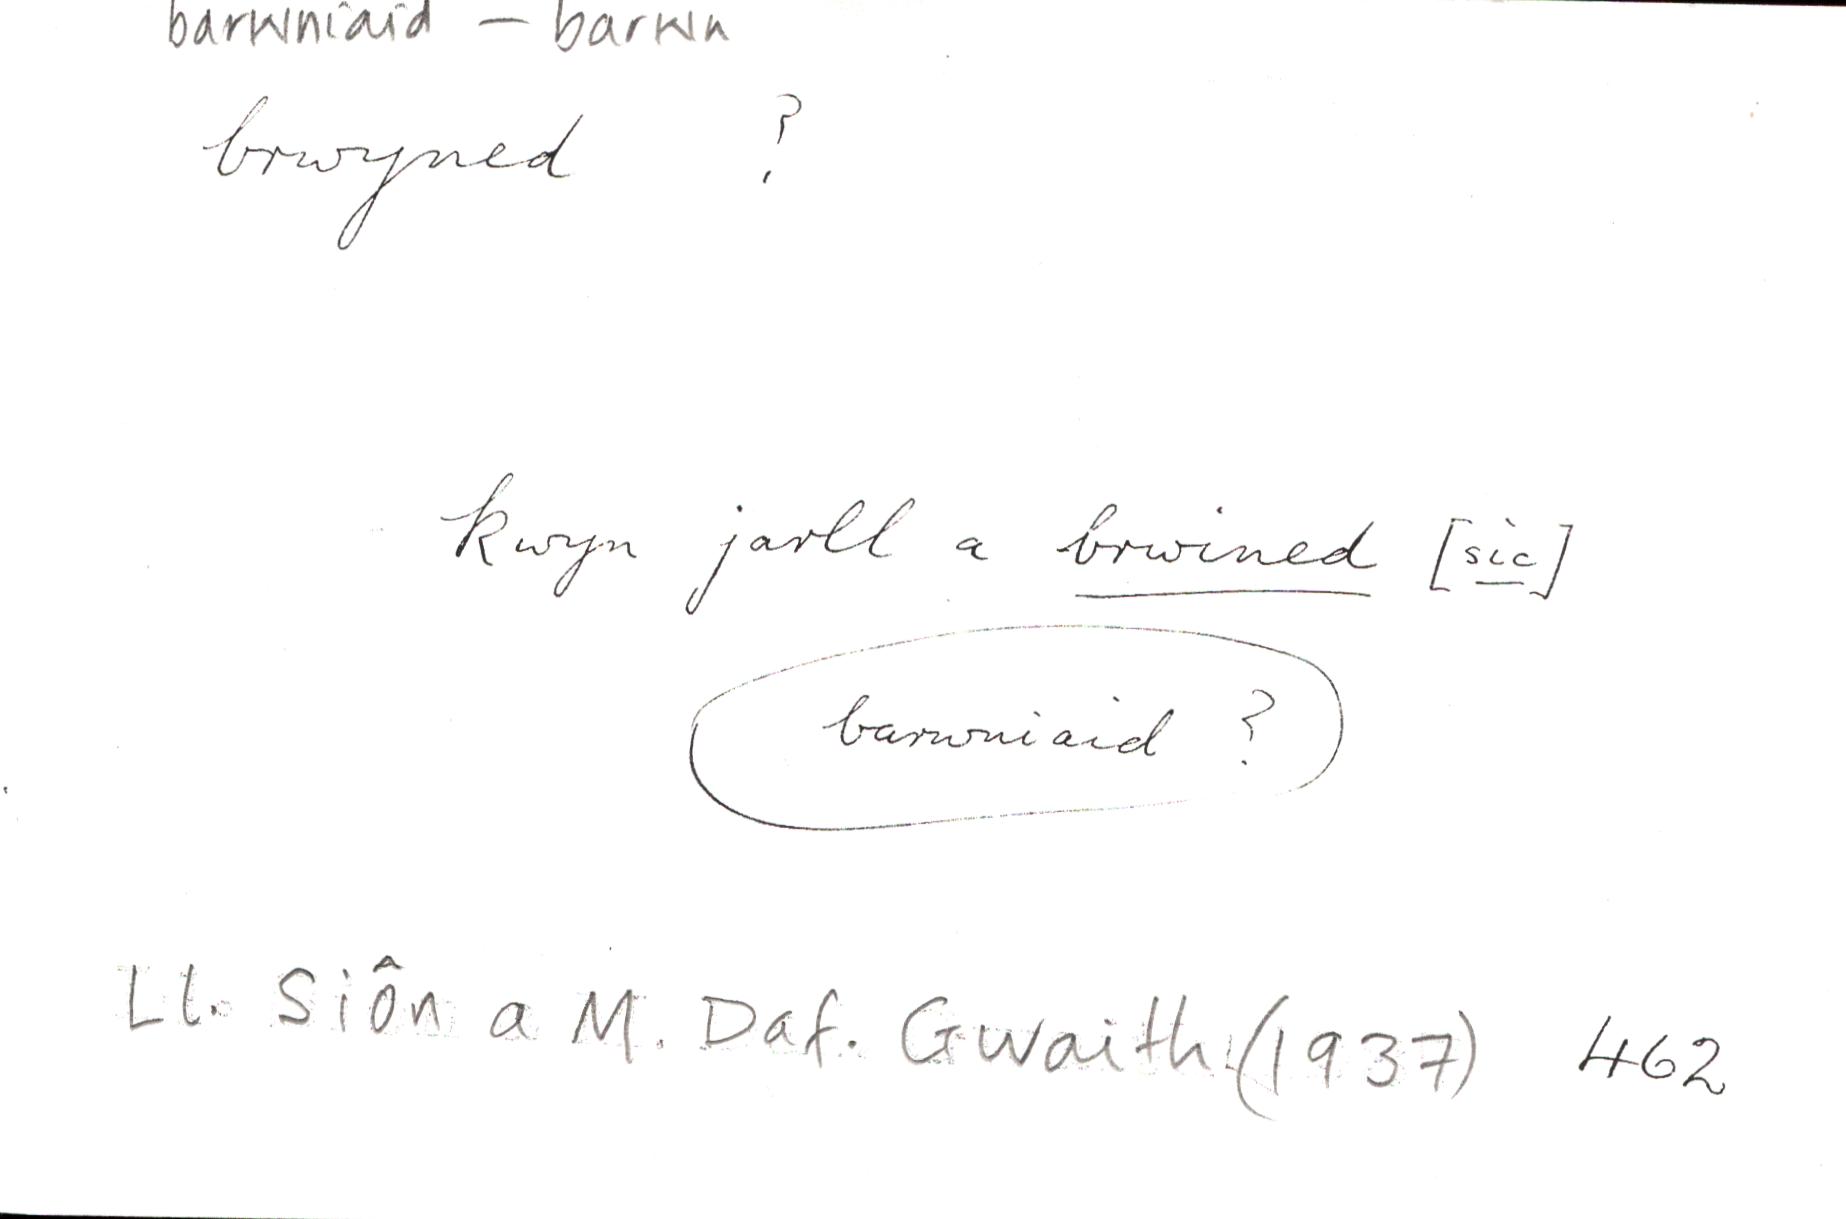 barwniaid – barwn
brwyned ?
kwyn jarll a brwined [sic]
barwniaid ?
Ll. Siôn a M. Daf. Gwaith (1937) 462